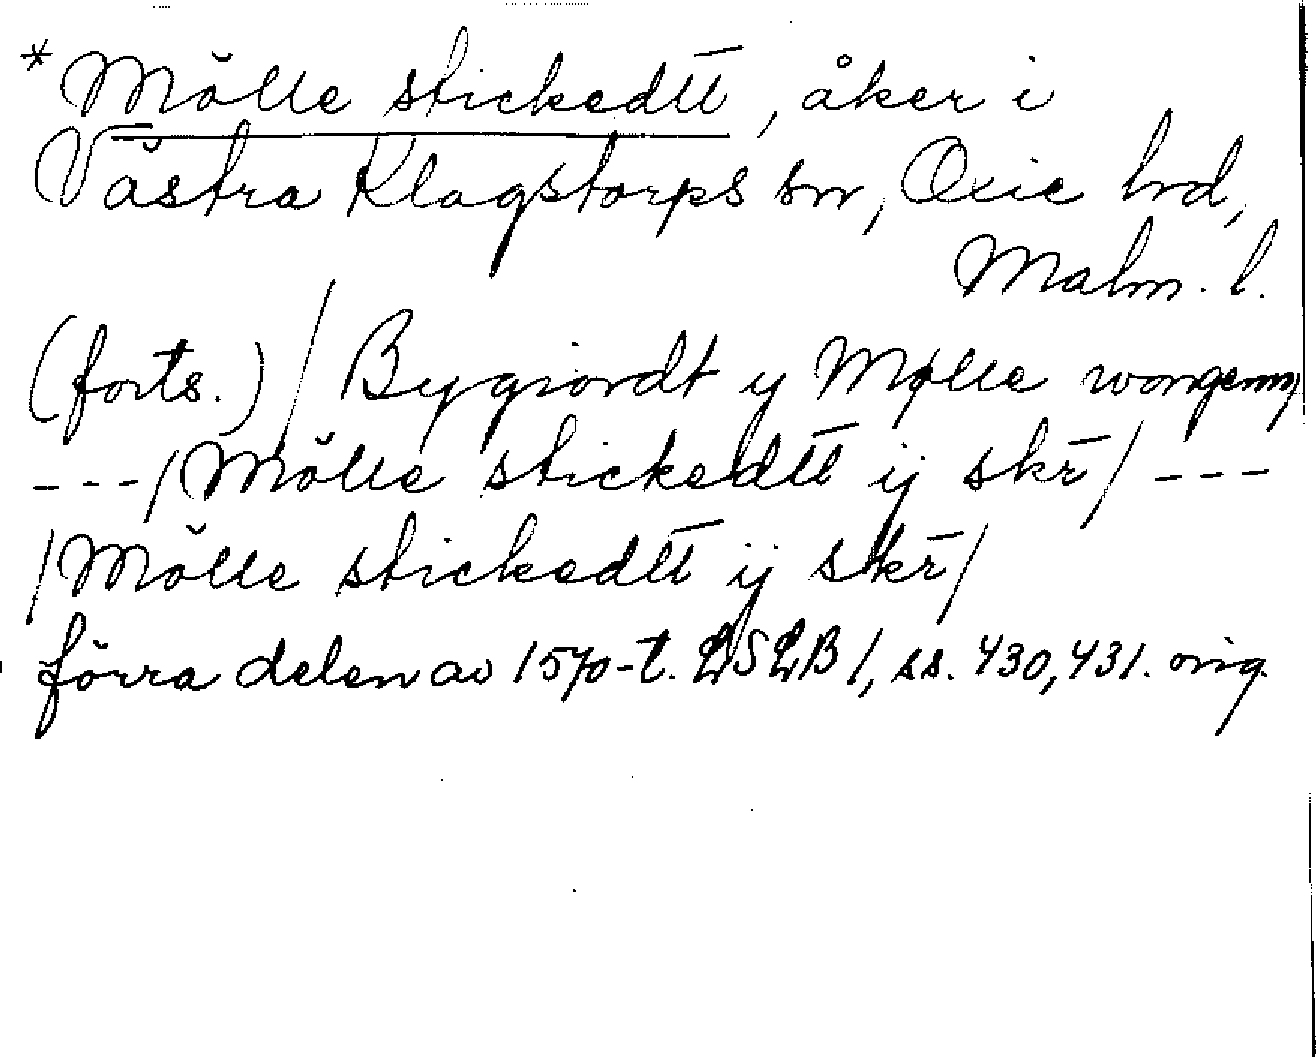 * Mölle stickedtt, åker i
Västra Klagstorps sn, Oxie hd,
Malm. l.
(forts.) / Bygiordt y Mølle wongenn,
---/Mölle stickedtt ij skr̄/ ---
/Mölle stickedtt ij skr̄/
förra delen av 1570-t. LSLB 1, ss. 430, 431. orig.